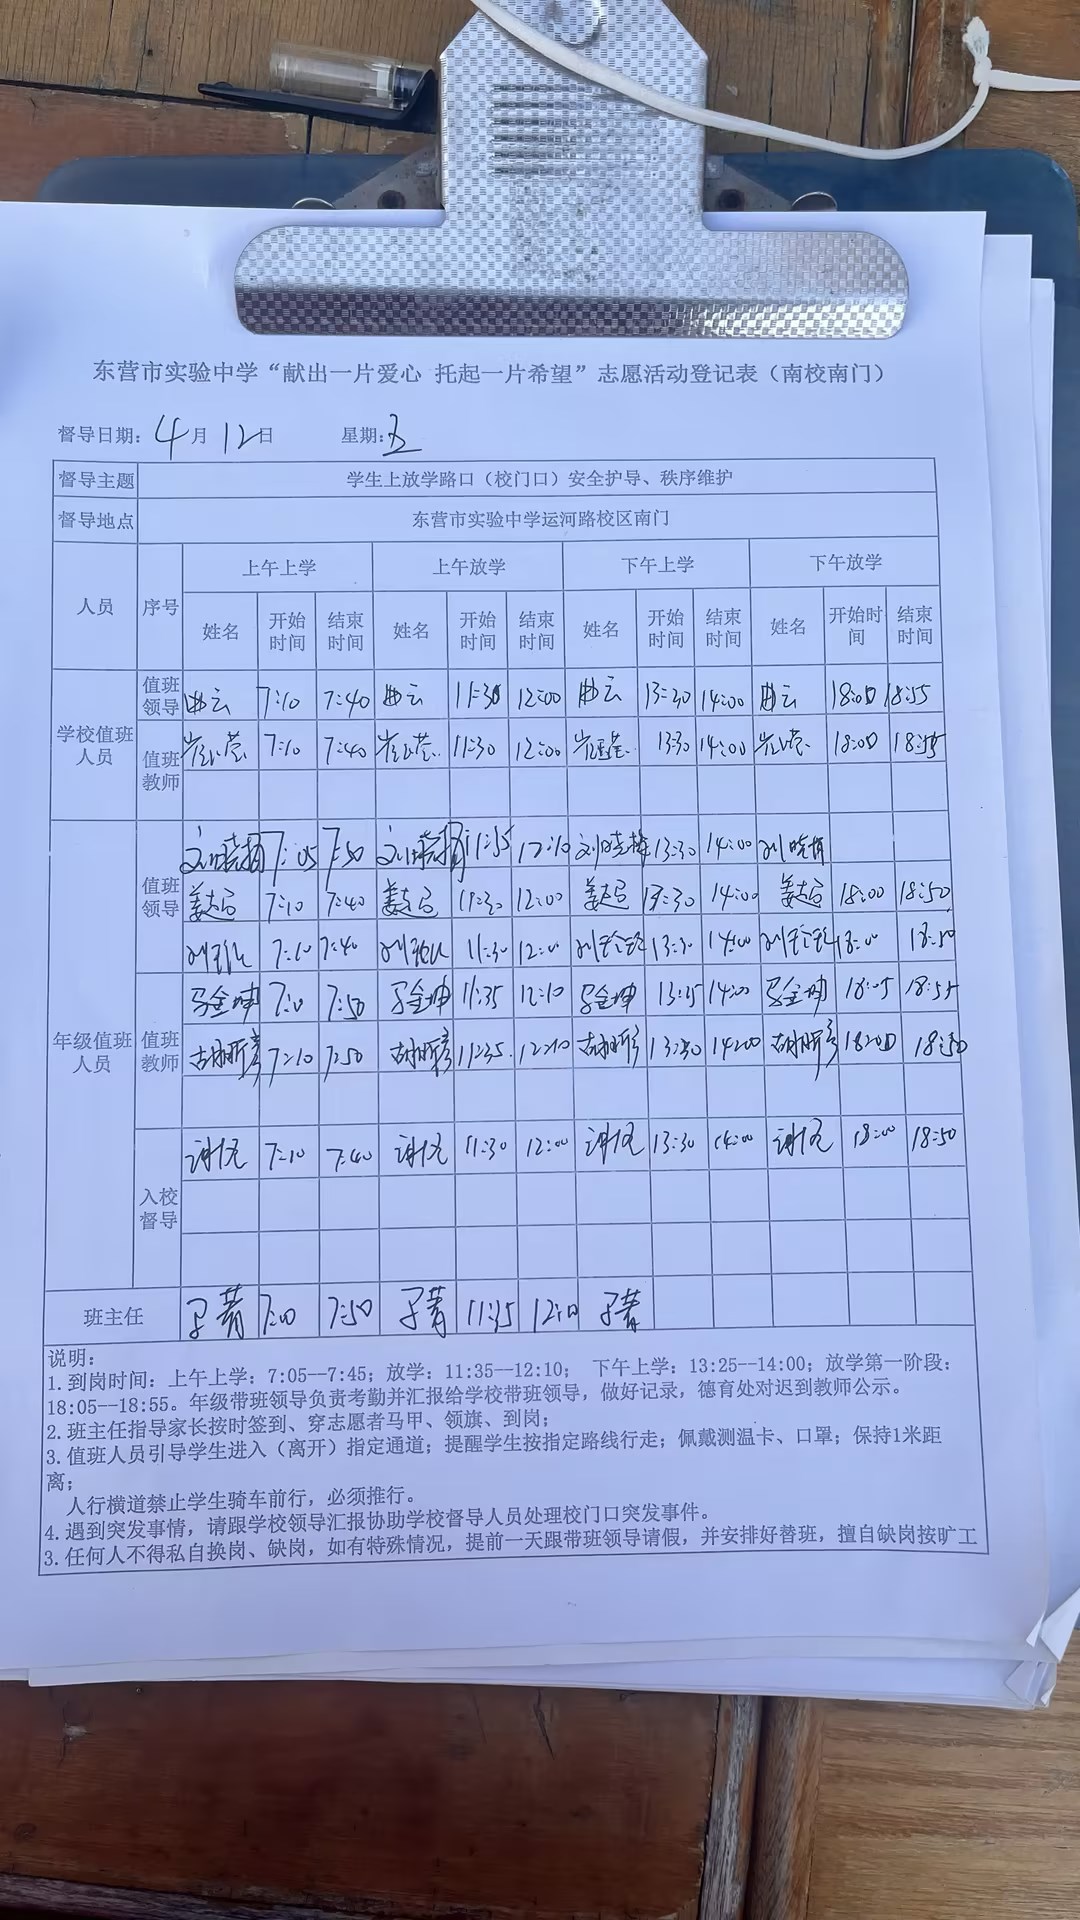 东营市实验中学“献出一片爱心 托起一片希望”志愿活动登记表（南校南门）
督导日期：4月12日 星期：五
督导主题 学生上放学路口（校门口）安全护导、秩序维护
督导地点 东营市实验中学运河路校区南门
人员 序号 上午上学 上午放学 下午上学 下午放学
姓名 开始时间 结束时间 姓名 开始时间 结束时间 姓名 开始时间 结束时间 姓名 开始时间 结束时间
学校值班人员
值班领导 曲云 7:10 7:40 曲云 11:30 12:00 曲云 13:30 14:00 曲云 18:00 18:55
值班教师 7:10 7:40 11:30 12:00 13:30 14:00 18:00 18:55
年级值班人员
值班领导 刘晓梅 7:05 7:50 刘晓梅 11:35 12:10 刘晓梅 13:30 14:00 刘晓梅
7:10 7:40 11:30 12:00 13:30 14:00 18:00 18:50
7:10 7:40 11:30 12:00 13:30 14:00 18:00 18:50
值班教师 马金坤 7:50 马金坤 11:35 12:10 马金坤 14:00 马金坤 18:05 18:55
7:10 7:50 11:35 12:10 13:30 14:00 18:00 18:50
入校督导 7:10 7:40 11:30 12:00 13:30 14:00 18:00 18:50
班主任 7:00 7:50 11:35 12:10
说明：
1.到岗时间：上午上学：7:05--7:45；放学：11:35--12:10； 下午上学：13:25--14:00；放学第一阶段：
18:05--18:55。年级带班领导负责考勤并汇报给学校带班领导，做好记录，德育处对迟到教师公示。
2.班主任指导家长按时签到、穿志愿者马甲、领旗、到岗；
3.值班人员引导学生进入（离开）指定通道；提醒学生按指定路线行走；佩戴测温卡、口罩；保持1米距
离；
人行横道禁止学生骑车前行，必须推行。
4.遇到突发事情，请跟学校领导汇报协助学校督导人员处理校门口突发事件。
3.任何人不得私自换岗、缺岗，如有特殊情况，提前一天跟带班领导请假，并安排好替班，擅自缺岗按旷工